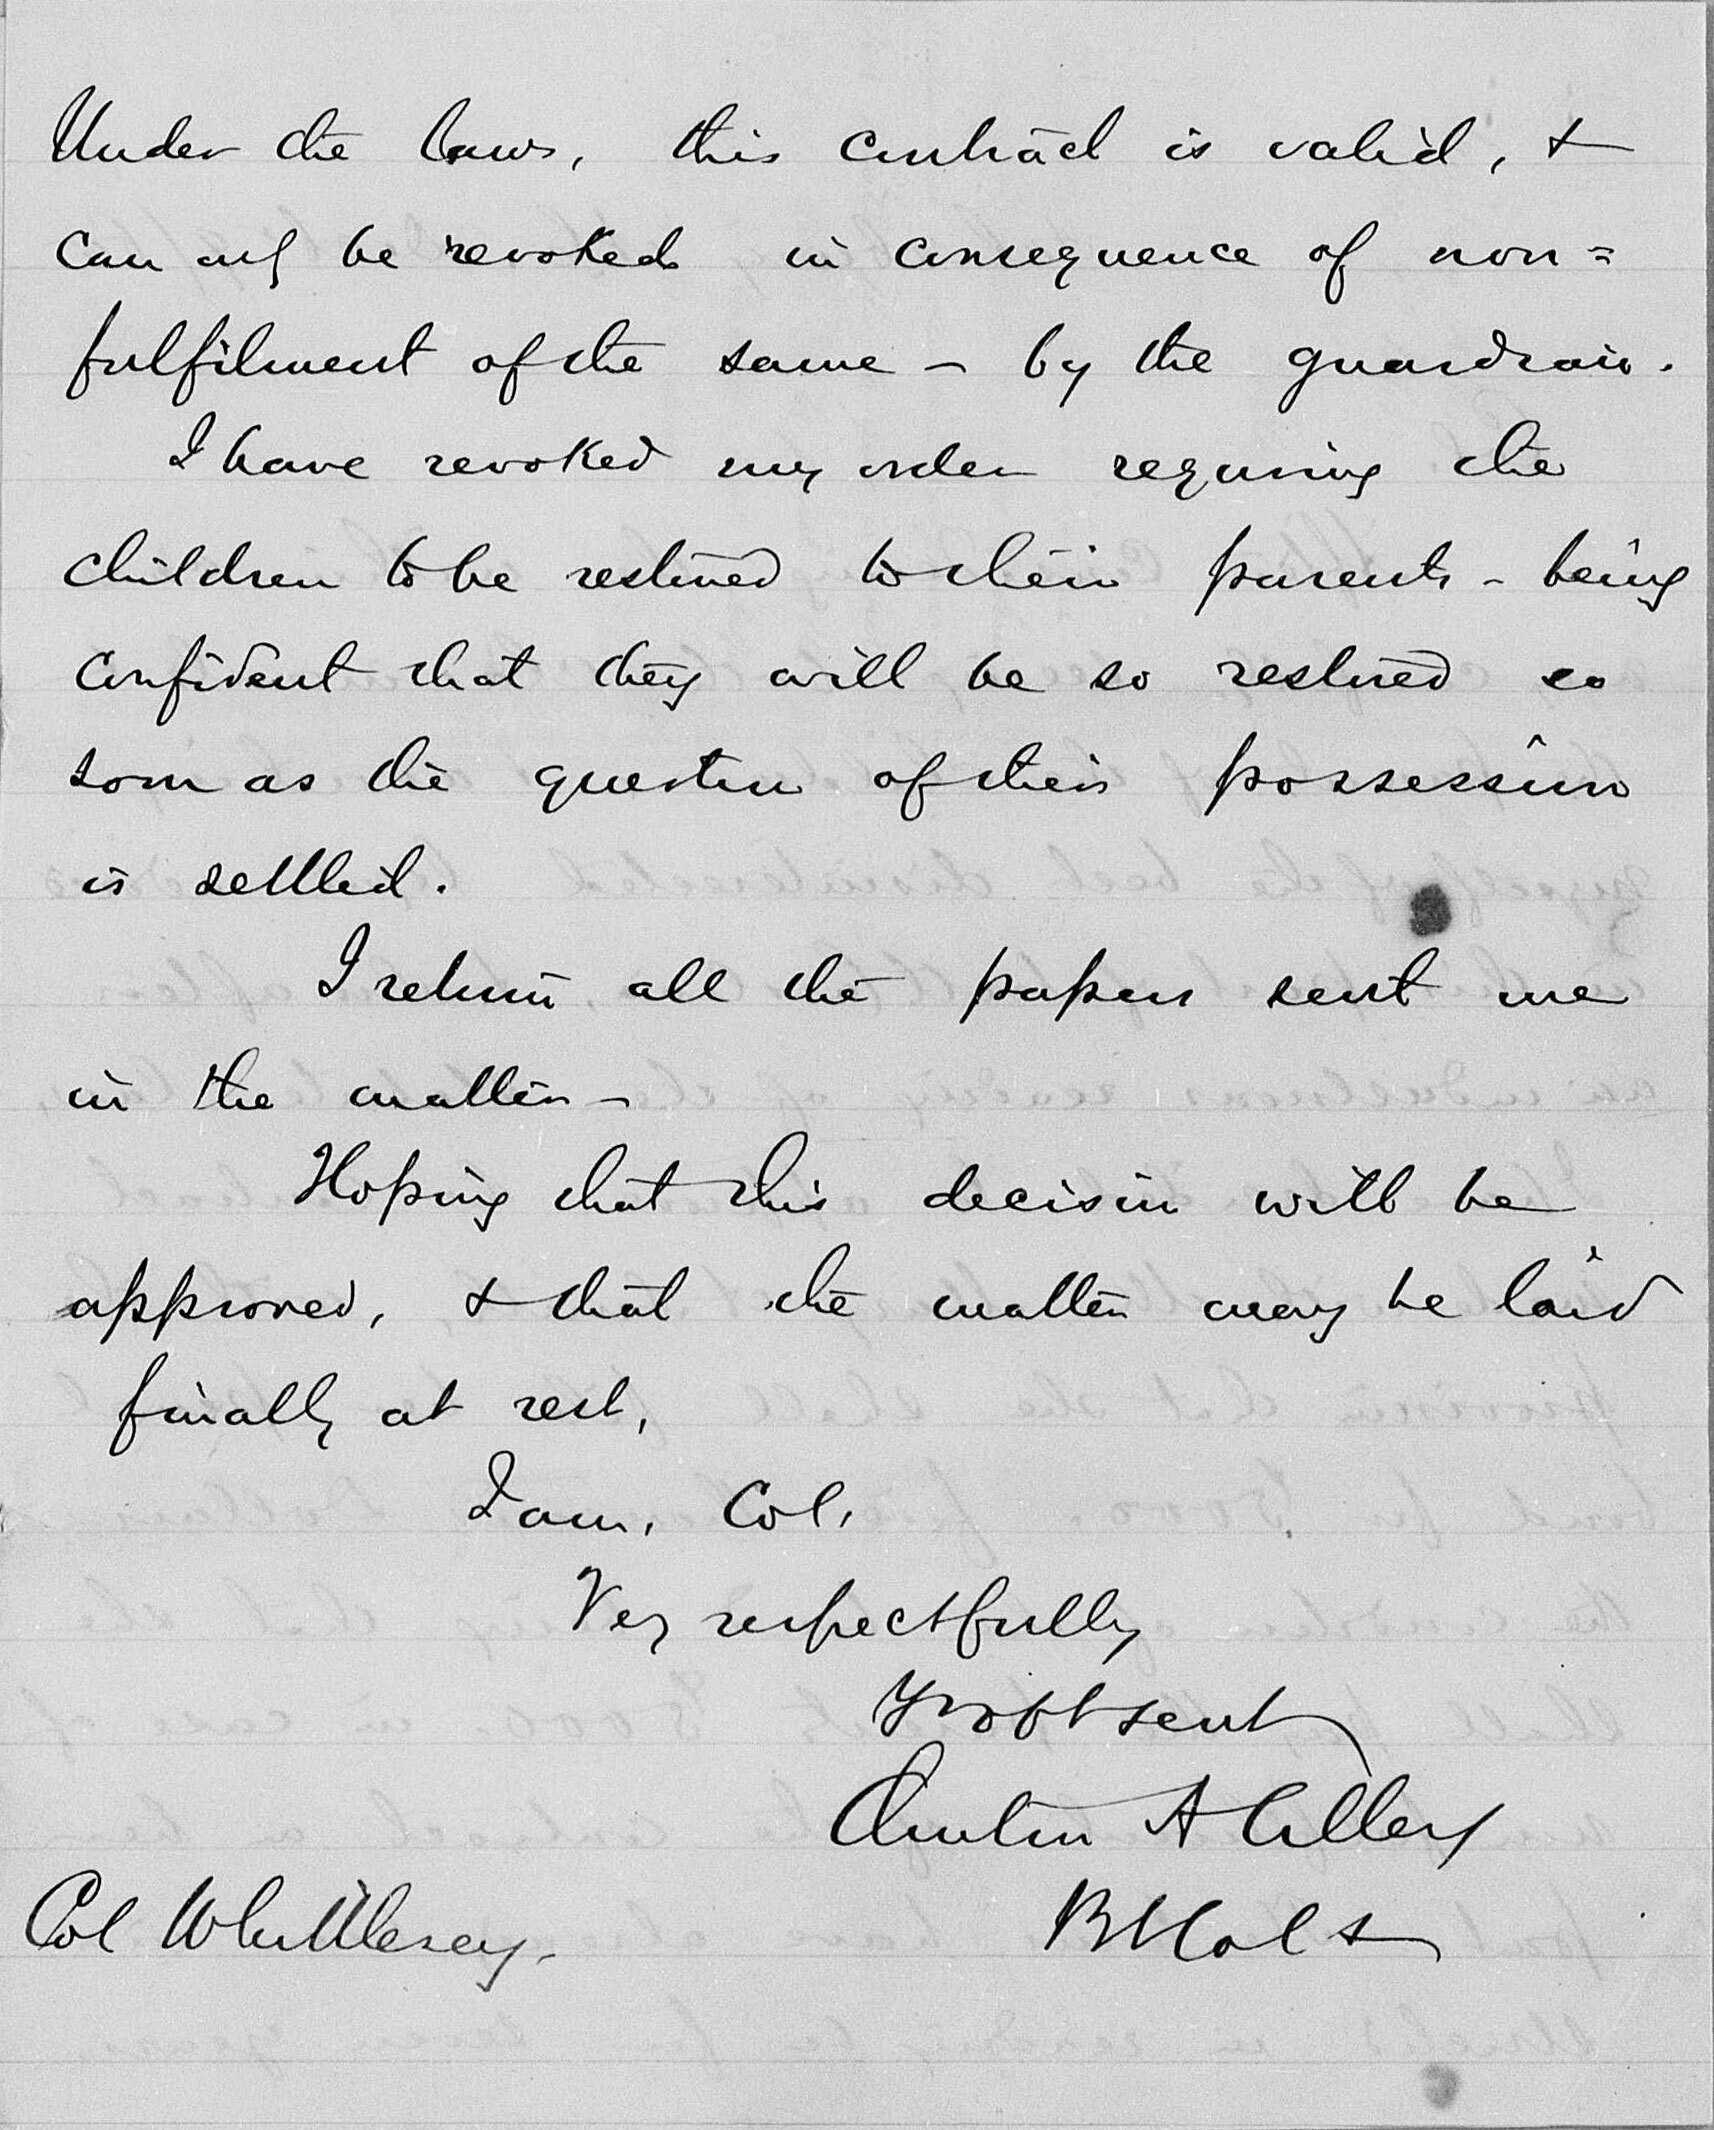 Under the laws, this contract is valid, &
can only be revoked in consequence of non=
fulfilment of the same - by the guardian.
I have revoked my order requiring the
children to be restored to their parents - being
confident that they will be so restored so
soon as the question of their possession
is settled.
I return all the papers sent me
in the matter -
Hoping that this decision will be
approved, & that the matter may be laid
finally at rest,
I am, Col,
Very respectfully
Yr obt servt
Clinton A Cilley
Col Whittlesey.